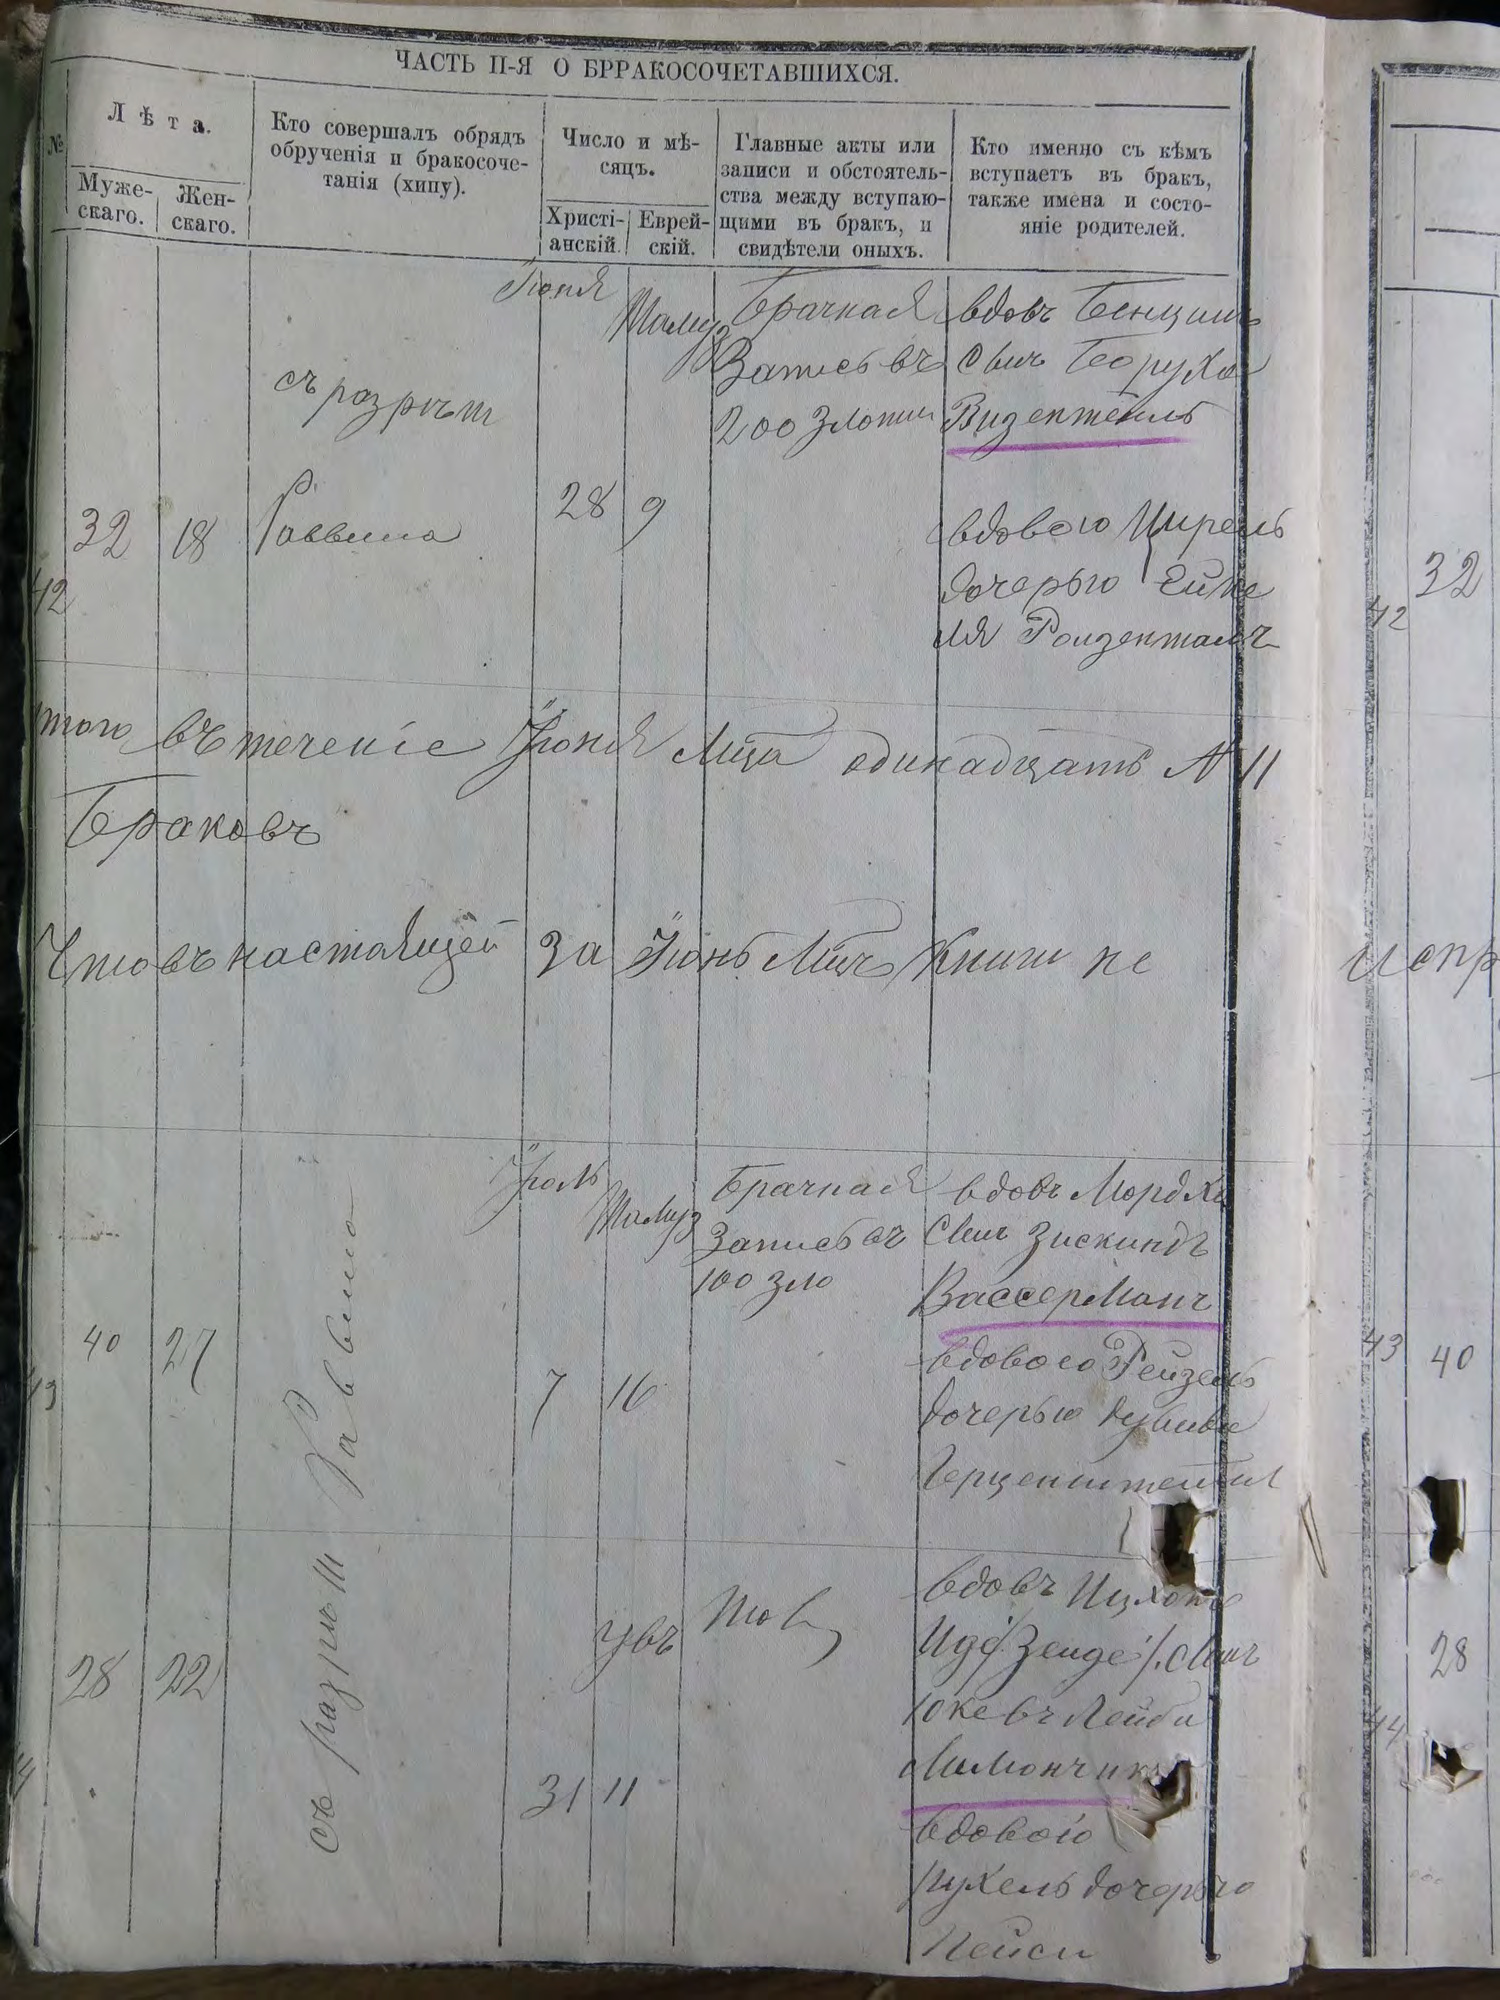 ЧАСТЬ II-Я О БРРАКОСОЧЕТАВШИХСЯ.
№
Лѣта.
Муже-
скаго.
Жен-
скаго.
Кто совершалъ обрядъ
обрученія и бракосоче-
танія (хипу).
Число и мѣ-
сяцъ.
Христі-
анскій.
Еврей-
скій.
Главные акты или
записи и обстоятель-
ства между вступаю-
щими въ бракъ, и
свидѣтели оныхъ.
Кто именно съ кѣмъ
вступаетъ въ бракъ,
также имена и состо-
яніе родителей.
42
32
18
съ разрѣш
Раввина
Іюня
28
Тамуз
9
Брачная
Запись въ
200 злотых
вдовъ Бенцинъ
сынъ Боруха
Визентейль
вдовою Цирель
дочерью Ейке
ля Роизенталъ
32
42
Итого въ теченіе Іюня Мца одинадцать № 11
Браковъ
Что въ настоящей за Іюнь Мцъ Книги не
испр
43
40
27
съ разрѣш Раввина
Іюль
7
Тамуз
16
Брачная
Запись въ
100 зло
вдовъ Мордхе
сынъ Зискиндъ
Вассерманъ
вдовою Рейзель
дочерью
Герценштейн
43
40
28
22
31
Увъ
11
вдовъ Ицхокъ
сынъ
Лейби
вдовою
Рухель дочерью
Пейси
28
44